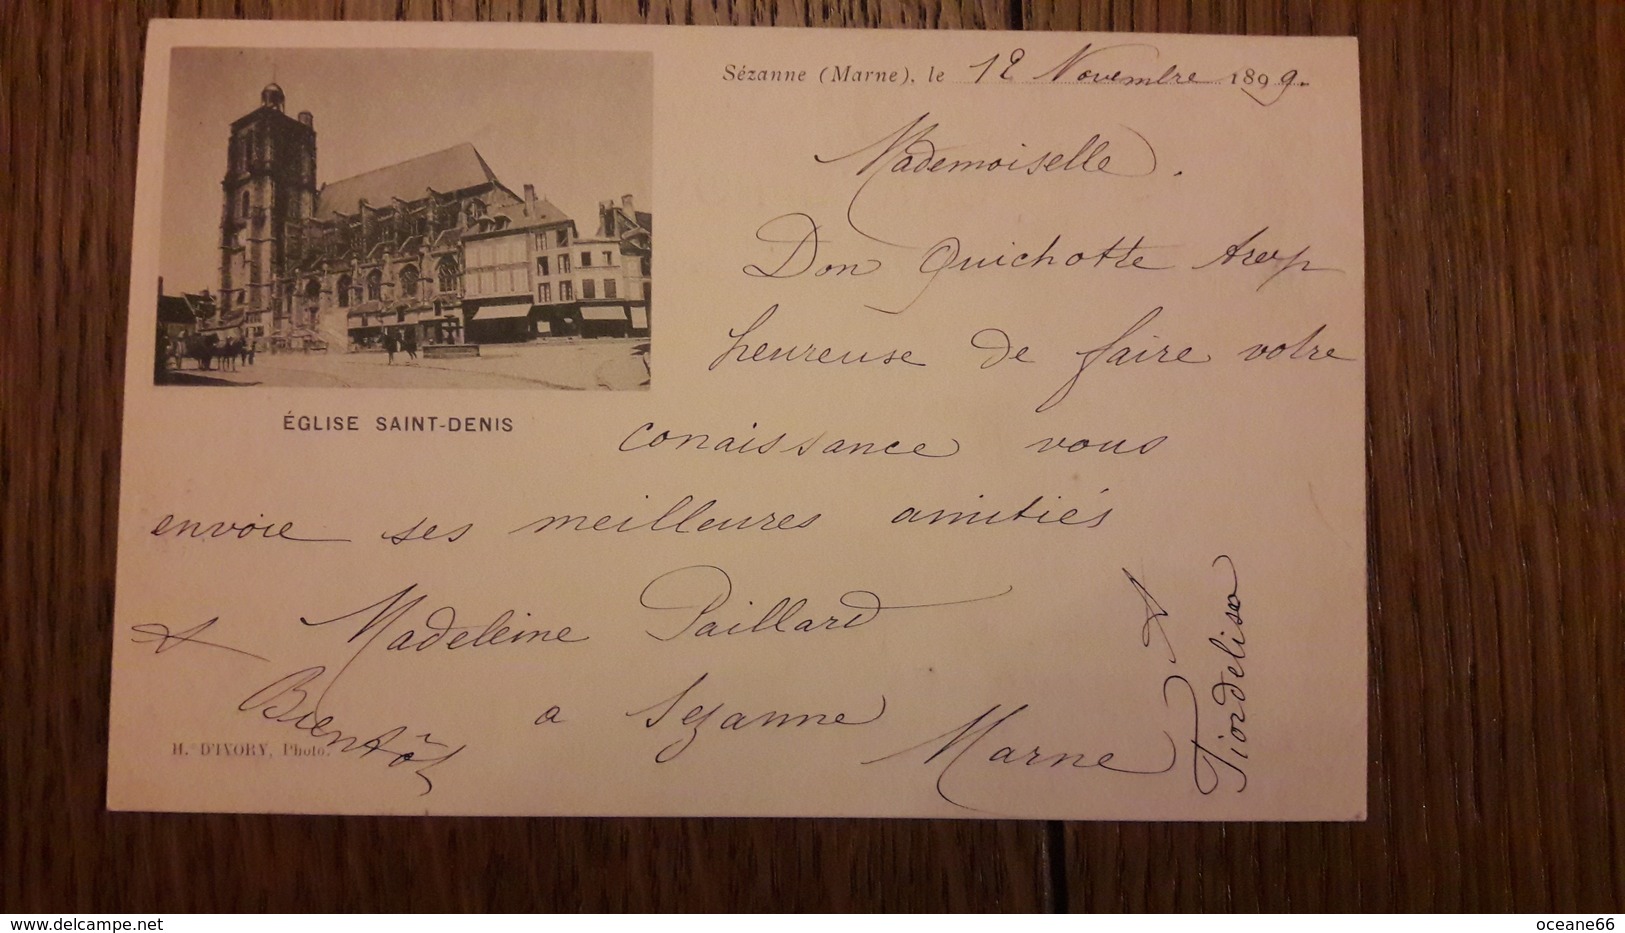 Sézanne (Marne), le 12 Novembre 1899.
Mademoiselle.
Don Quichotte
heureuse de faire votre
conaissance vous
envoie ses meilleures amitiés
Madeleine Paillard
a Sezanne
Marne
Bientôt
ÉGLISE SAINT-DENIS
H. D'IVORY, Photo.
oceane66